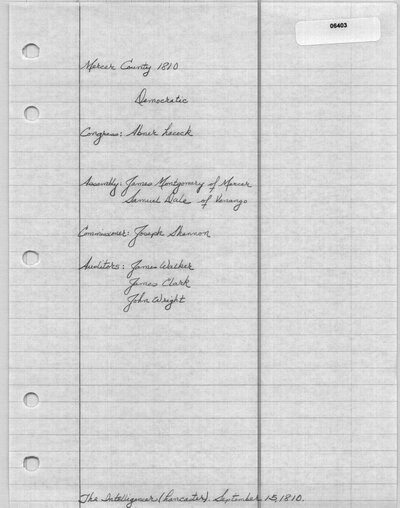 06403
Mercer County 1810
Democratic
Congress: Abner Lacock
Assembly: James Montgomery of Mercer
Samuel Dale of Venango
Commissioner: Joseph Shannon
Auditors: James Walker
James Clark
John Wright
The Intelligencer (Lancaster). September 15, 1810.